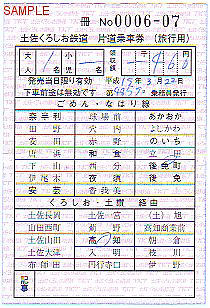 SAMPLE
冊 No 0006-07
土佐くろしお鉄道 片道乗車券 (旅行用)
大人 1 小児 領収額 860
発売当日限り有効 平成15年3月22日
下車前途は無効です 乗務員発行
ごめん・なはり線
奈半利 球場前 あかおか
田野 穴内 よしかわ
安田 赤野 のいち
唐浜 和食 立田
下山 西分 後免町
伊尾木 夜須 後免
安芸 香我美
くろしお・土讃 経由
土佐長岡 土佐一宮 (土) 旭
山田西町 薊野 高知商業前
土佐山田 高知 朝倉
土佐大津 入明 枝川
布師田 円行寺口 伊野
記事